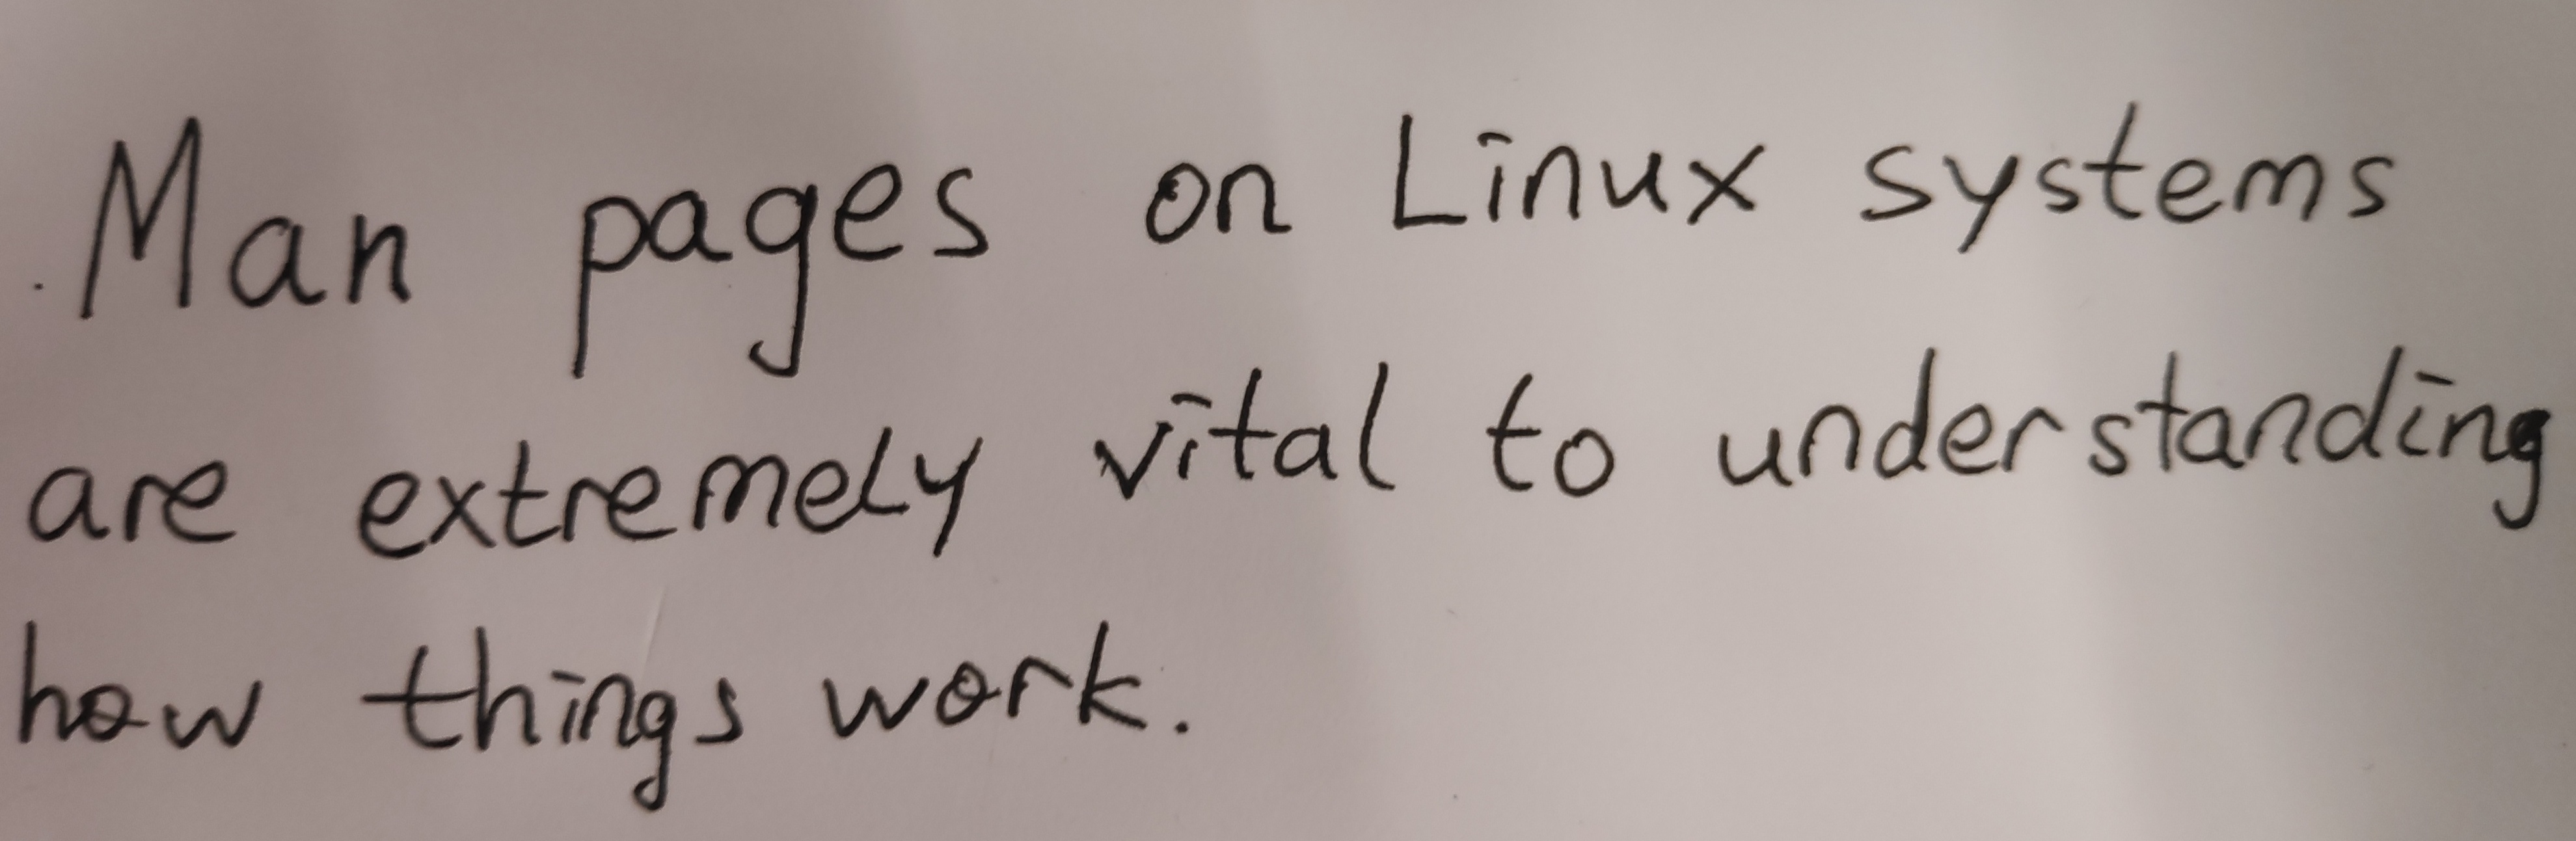 Man pages on Linux systems
are extremely vital to understanding
how things work.